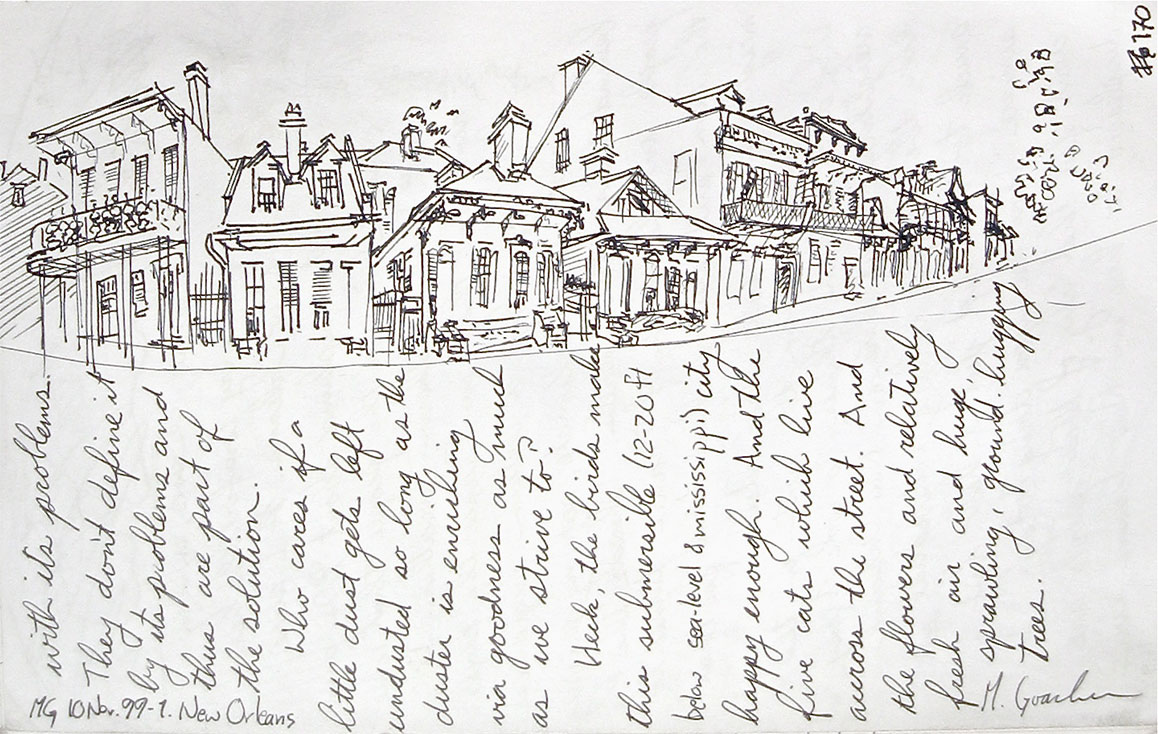 with its problems.
They don't define it
by its problems and
thus are part of
the solution.
Who cares if a
little dust gets left
undusted so long as the
duster is enriching
via goodness as much
as we strive to?
Heck, the birds make
this submersible (12-20 ft
below sea-level & mississippi) city
happy enough. And the
five cats which live
across the street. And
the flowers and relatively
fresh air and huge,
sprawling, ground-hugging
trees.
MG 10 Nov. 99-1. New Orleans
170